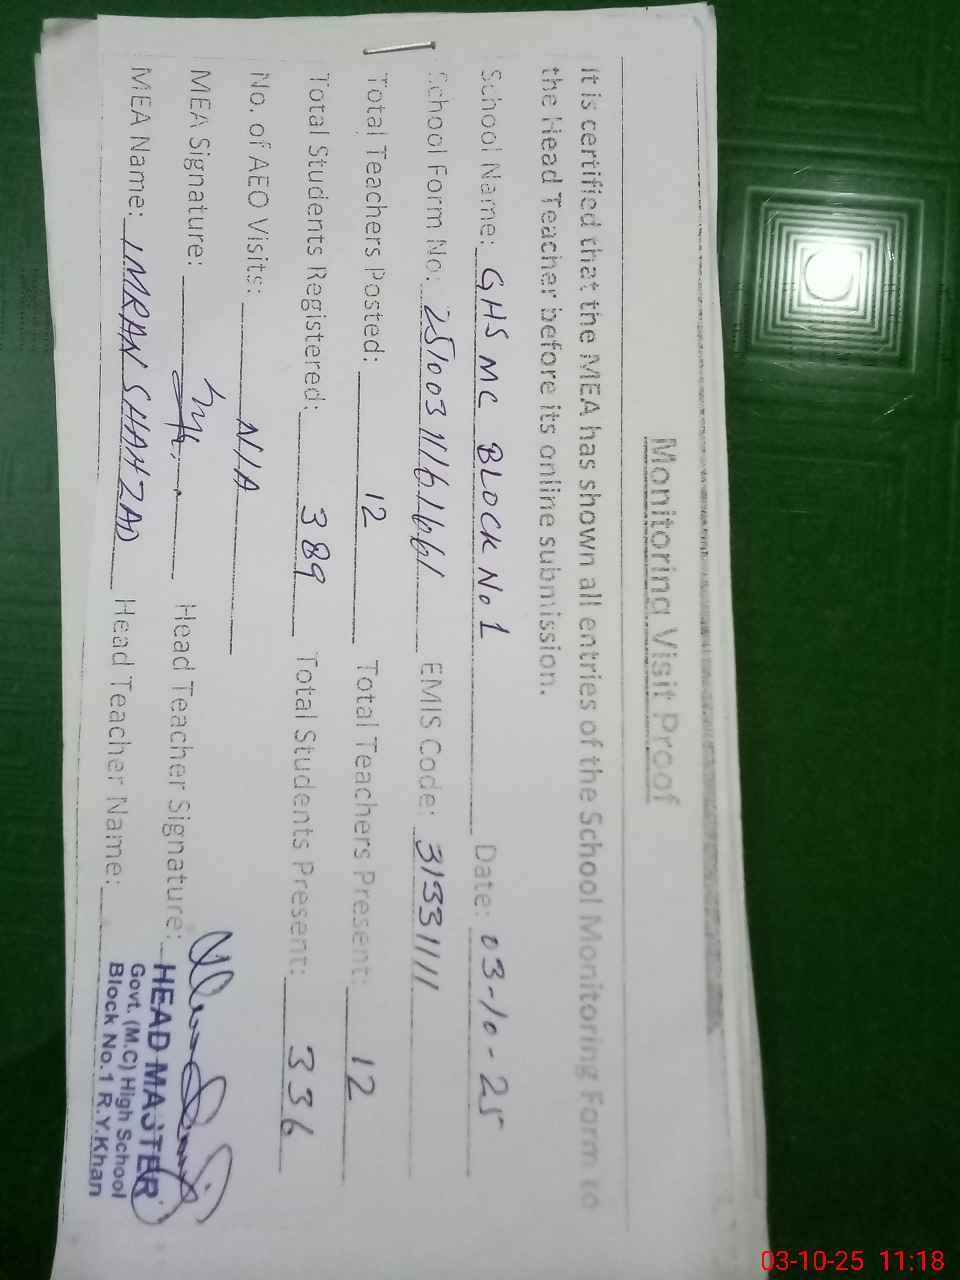 Monitoring Visit Proof
It is certified that the MEA has shown all entries of the School Monitoring Form to
the Head Teacher before its online submission.
School Name: GHS MC BLOCK No 1 Date: 03-10-25
School Form No: EMIS Code: 31331111
Total Teachers Posted: 12 Total Teachers Present: 12
Total Students Registered: 389 Total Students Present: 336
No. of AEO Visits: N/A
MEA Signature: Head Teacher Signature:
MEA Name: IMRAN SHAHZAD Head Teacher Name:
HEAD MASTER
Govt. (M.C) High School
Block No.1 R.Y.Khan
03-10-25 11:18